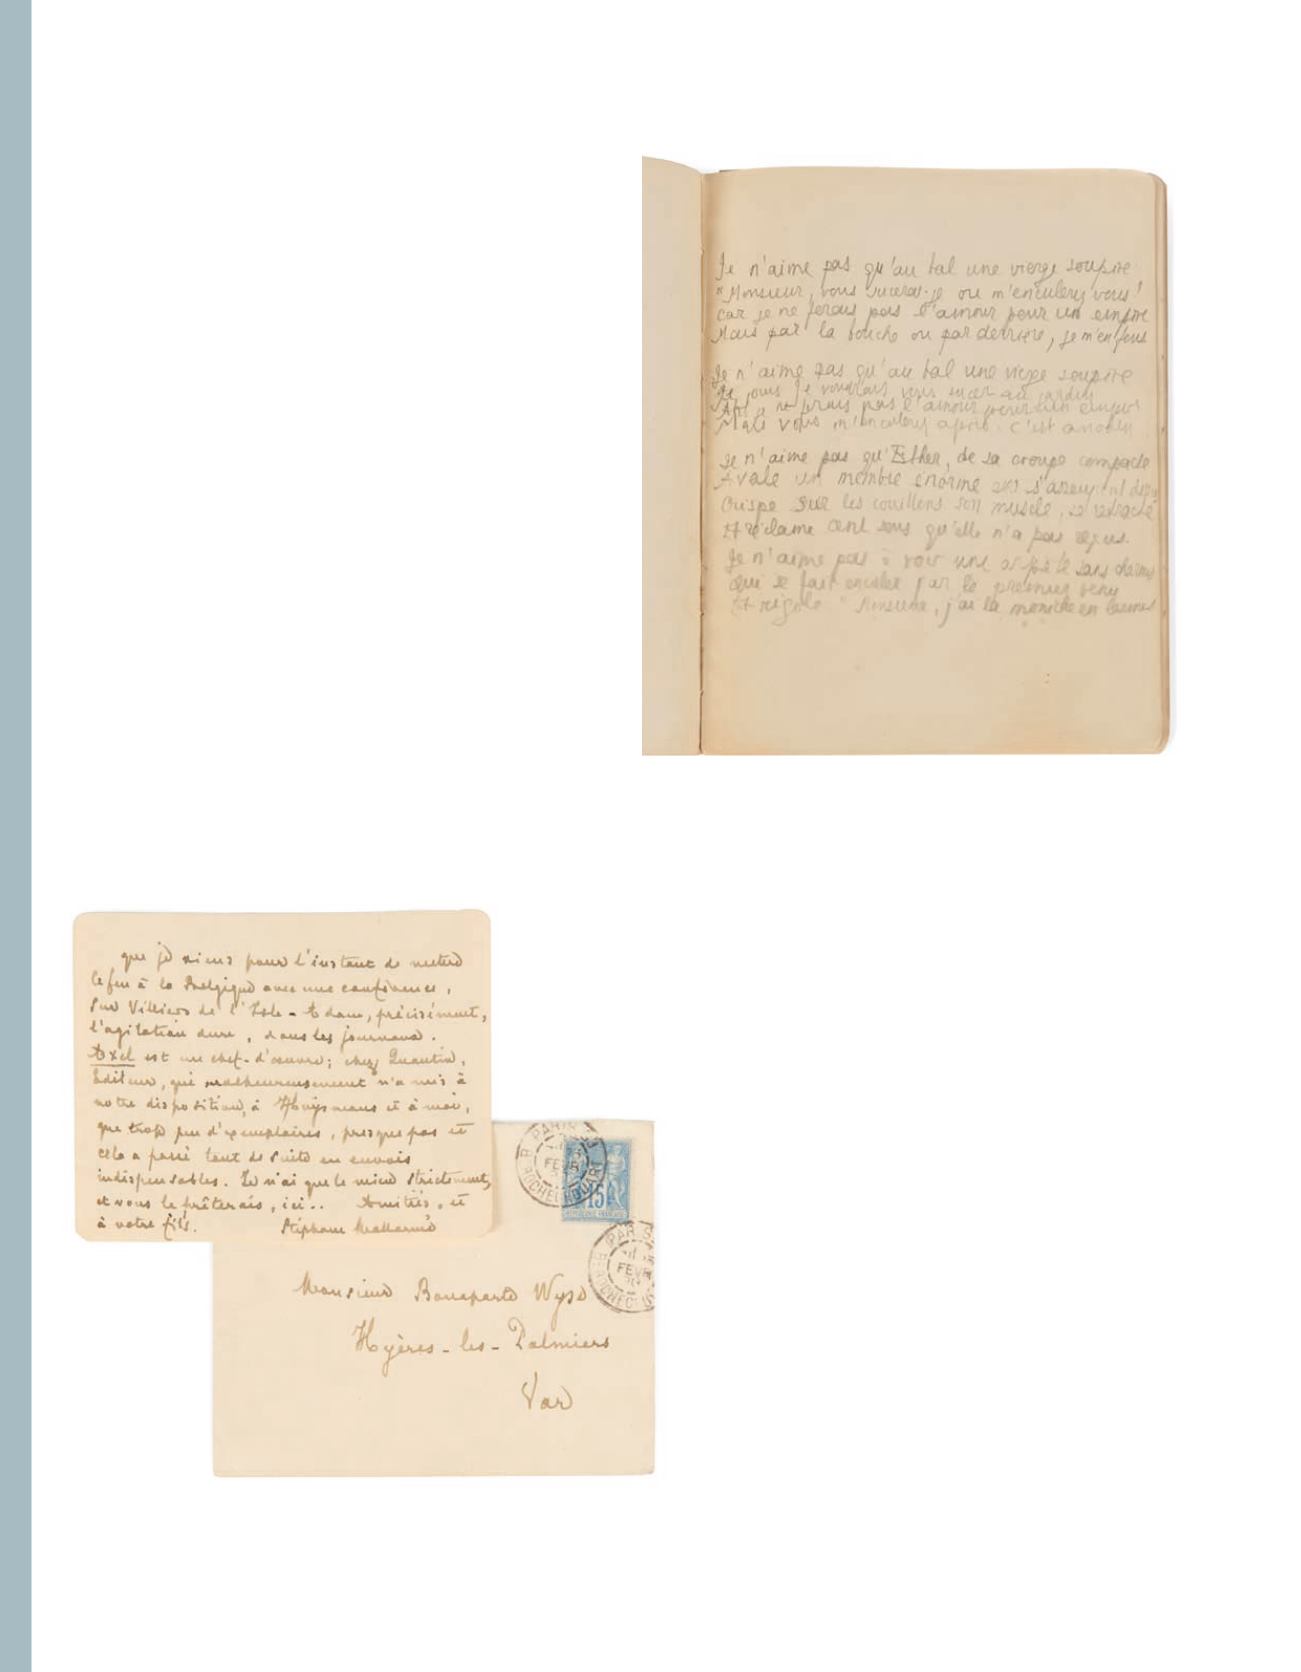 Je n'aime pas qu'au bal une vierge soupire
"Monsieur, vous sucerai-je ou m'enculerez vous!
Car je ne ferais pas l'amour pour un empire
Mais par la bouche ou par derrière, je m'en fous
Je n'aime pas qu'au bal une vierge soupire
Je jouis Je voudrais vous sucer au jardin
ne ferais pas l'amour pour un empire
Mais vous m'enculerez après. C'est anodin
Je n'aime pas qu'Esther, de sa croupe compacte
Avale un membre énorme et s'asseyant dessus
Crispe sur les couillons son muscle, se rétracte
Et réclame cent sous qu'elle n'a pas reçus.
Je n'aime pas à voir une sans charmes
Qui se fait enculer par le premier venu
Et rigole "Monsieur, j'ai la moniche en larmes
que je viens pour l'instant de mettre
le feu à la Belgique avec une conférence,
sur Villiers de l'Isle-Adam, précisément,
l'agitation dure, dans les journaux.
Axël est un chef-d'œuvre; chez Quantin,
Editeur, qui malheureusement n'a mis à
notre disposition, à Huysmans et à moi,
que trop peu d'exemplaires, presque pas et
cela a passé tout de suite en envois
indispensables. Je n'ai que le mien strictement,
et vous le prêterais, ici.. Amitiés, et
à votre fils. Stéphane Mallarmé
PARIS
FEVR
R. ROCHECHOUART
15
REPUBLIQUE FRANÇAISE
PARIS
FEVR
90
Monsieur Bonaparte Wyse
Hyères-les-Palmiers
Var